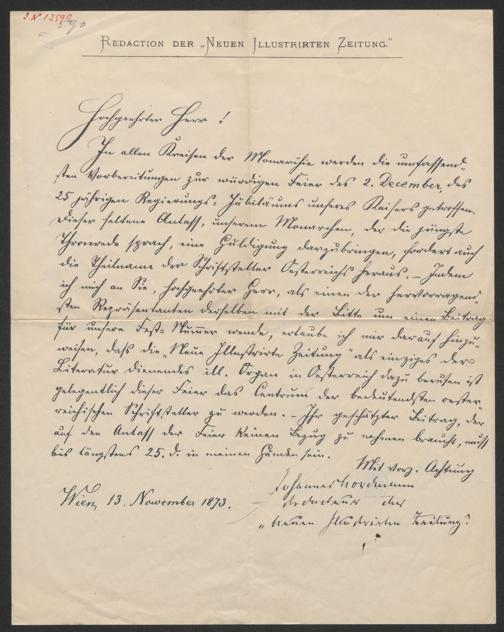 J.N. 12590
REDACTION DER „NEUEN ILLUSTRIRTEN ZEITUNG."
Hochgeehrter Herr!
In allen Kreisen der Monarchie werden die umfassend-
sten Vorbereitungen zur würdigen Feier des 2. December, des
25 jährigen Regierungs-Jubiläums unseres Kaisers getroffen.
Dieser seltene Anlass, unserem Monarchen, der die jüngste
Thronrede sprach, eine Huldigung darzubringen, fordert auch
die Theilname der Schriftsteller Oesterreichs heraus. – Indem
ich mich an Sie, hochgeehrter Herr, als einen der hervorragend-
sten Repräsentanten derselben mit der Bitte um einen Beitrag
für unsere Fest-Nummer wende, erlaube ich mir darauf hinzu-
weisen, dass die „Neue Illustrirte Zeitung" als einziges der
Literatur dienendes ill. Organ in Oesterreich dazu berufen ist
gelegentlich dieser Feier das Centrum der bedeutendsten oester-
reichischen Schriftsteller zu werden. – Ihr geschätzter Beitrag, der
auf den Anlass der Feier keinen Bezug zu nehmen braucht, muss
bis längstens 25. d. in meinen Händen sein.
Mit vorz. Achtung
Johannes Nordmann
Redacteur der
„Neuen Illustrirten Zeitung".
Wien, 13. November 1873.